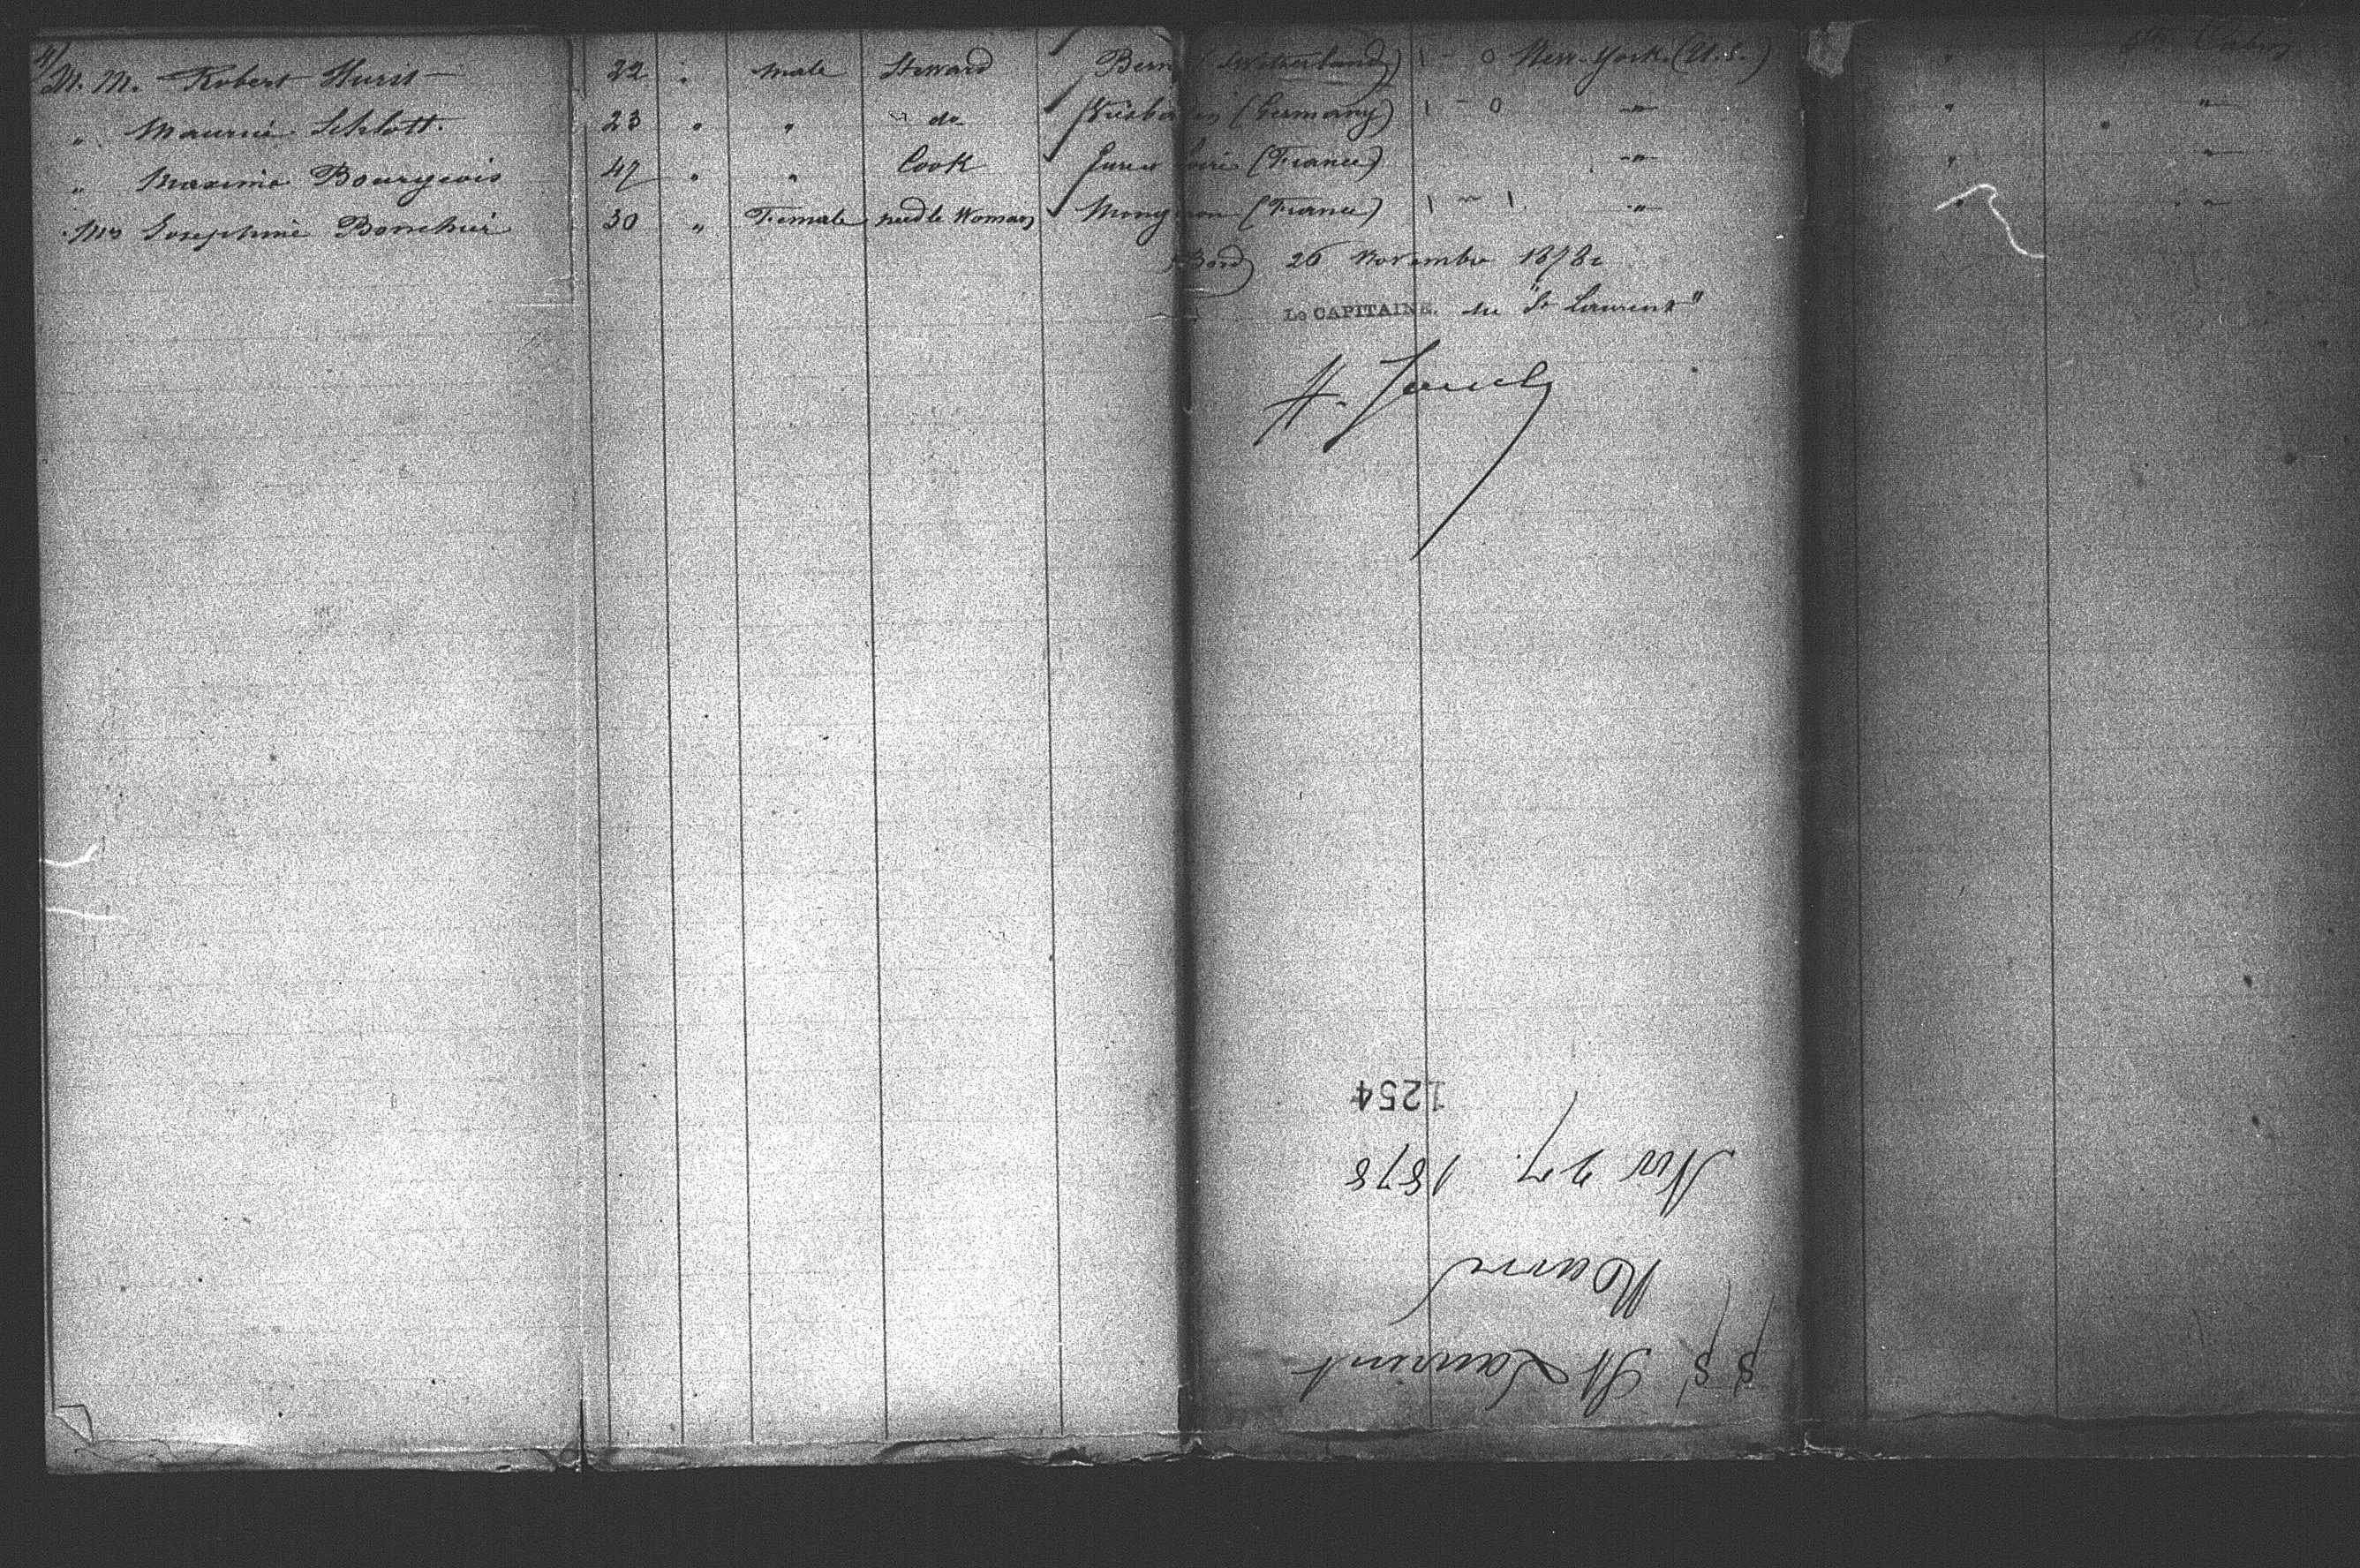 M. M. Robert Hurst 22 " male Steward Bern (Switzerland) 1 - 0 New-York (U.S.) "
" Maurice Schlott. 23 " " do Wiesbaden (Germany) 1 - 0 " " "
" Maxime Bourgeois 47 " " Cook Eure et Loire (France) " " "
Mrs Josephine 30 " Female needle Woman (France) 1 - 1 " " "
Bord 26 Novembre 1878
Le CAPITAINE. du "St Laurent"
1254
Nov 27. 1878
Havre
SS St Laurent